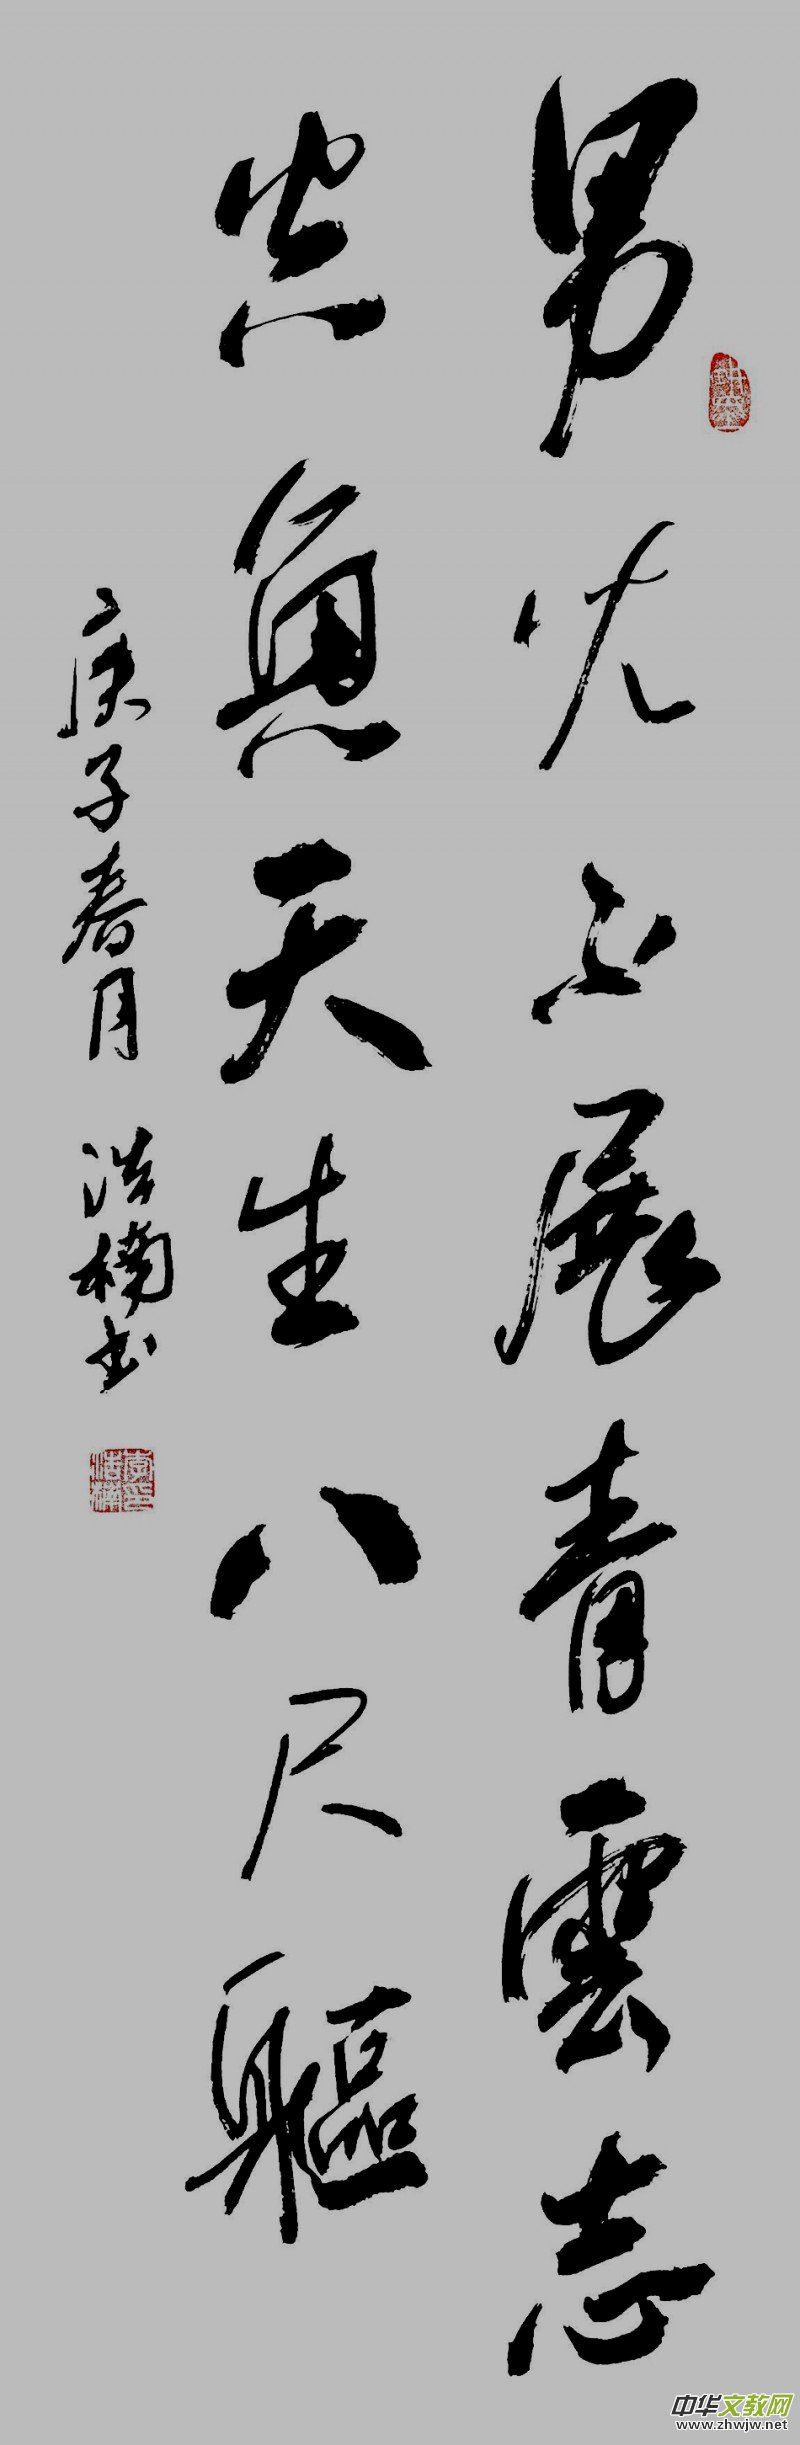 男儿不展青雲志
空負天生八尺軀
庚子春月 浩楠书
李印浩楠
中华文教网
www.zhwjw.net